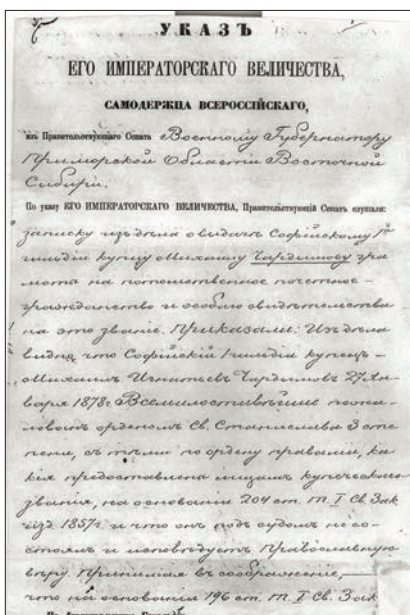 УКАЗЪ
ЕГО ИМПЕРАТОРСКАГО ВЕЛИЧЕСТВА,
САМОДЕРЖЦА ВСЕРОССІЙСКАГО,
изъ Правительствующаго Сената Военному Губернатору
Приморской Области Восточной
Сибири.
По указу ЕГО ИМПЕРАТОРСКАГО ВЕЛИЧЕСТВА, Правительствующій Сенатъ слушали:
записку изъ дѣла о выдачѣ Софійскому 1й
гильдіи купцу Михаилу Чардымову гра
моты на потомственное почетное
гражданство и особаго свидѣтельства
на это званіе. Приказали: Изъ дѣла
видно, что Софійскій 1 гильдіи купецъ
Михаилъ Игнатьевъ Чардымовъ 27 Ян-
варя 1878г Всемилостивѣйше пожа-
лованъ орденомъ Св. Станислава 3 сте
пени, съ тѣми по ордену правами, ка
кія предоставлены лицамъ купеческаго
званія, на основаніи 204 ст. т. I Св. Зак
изд. 1857г и что онъ подъ судомъ не со-
стоялъ и исповѣдуетъ Православную
вѣру. Принимая въ соображеніе,
что на основаніи 196 ст. т. I Св. Зак